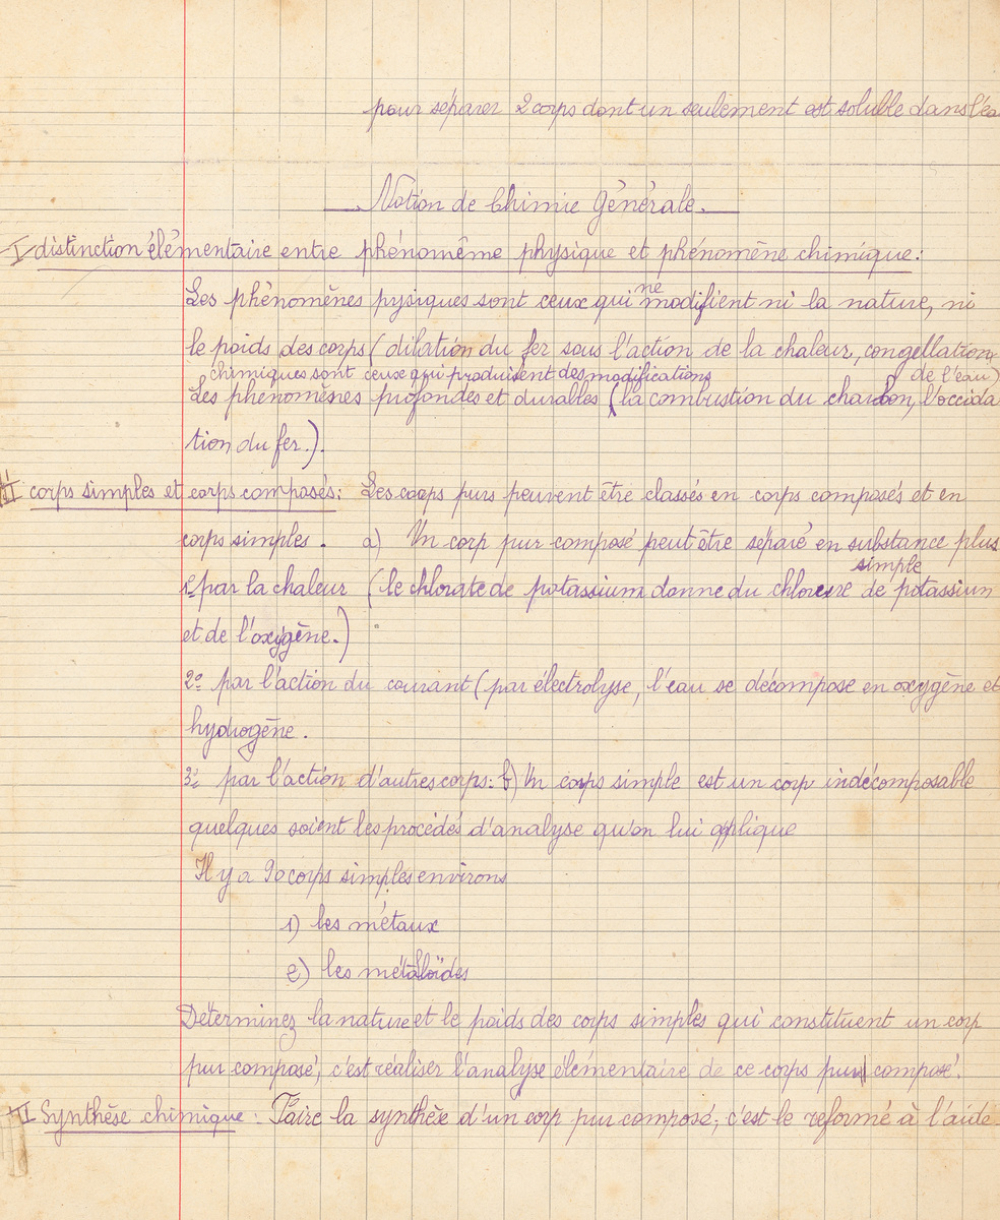 pour séparer 2 corps dont un seulement est soluble dans l'ea
Notion de Chimie Générale.
I distinction élémentaire entre phénomême physique et phénomène chimique:
Les phénomènes pysiques sont ceux qui ne modifient ni la nature, ni
le poids des corps (dilation du fer sous l'action de la chaleur, congellation
chimiques sont ceux qui produisent des modifications de l'eau)
Les phénomènes profondes et durables (la combustion du charbon, l'occida
tion du fer.).
II corps simples et corps composés: Les corps purs peuvent être classés en corps composés et en
corps simples. a) Un corp pur composé peut être séparé en substance plus
simple
1º par la chaleur (le chlorate de potassium donne du chlorure de potassium
et de l'oxygène.)
2º par l'action du courant (par électrolyse, l'eau se décompose en oxygène et
hydrogène.
3º par l'action d'autres corps: b) Un corps simple est un corp indécomposable
quelques soient les procédés d'analyse qu'on lui applique
Il y a 90 corps simples environs
1) les métaux
2) les métalloïdes
Déterminez la nature et le poids des corps simples qui constituent un corp
pur composé, c'est réaliser l'analyse élémentaire de ce corps pur composé.
III Synthèse chimique: Faire la synthèse d'un corp pur composé, c'est le reformé à l'aide